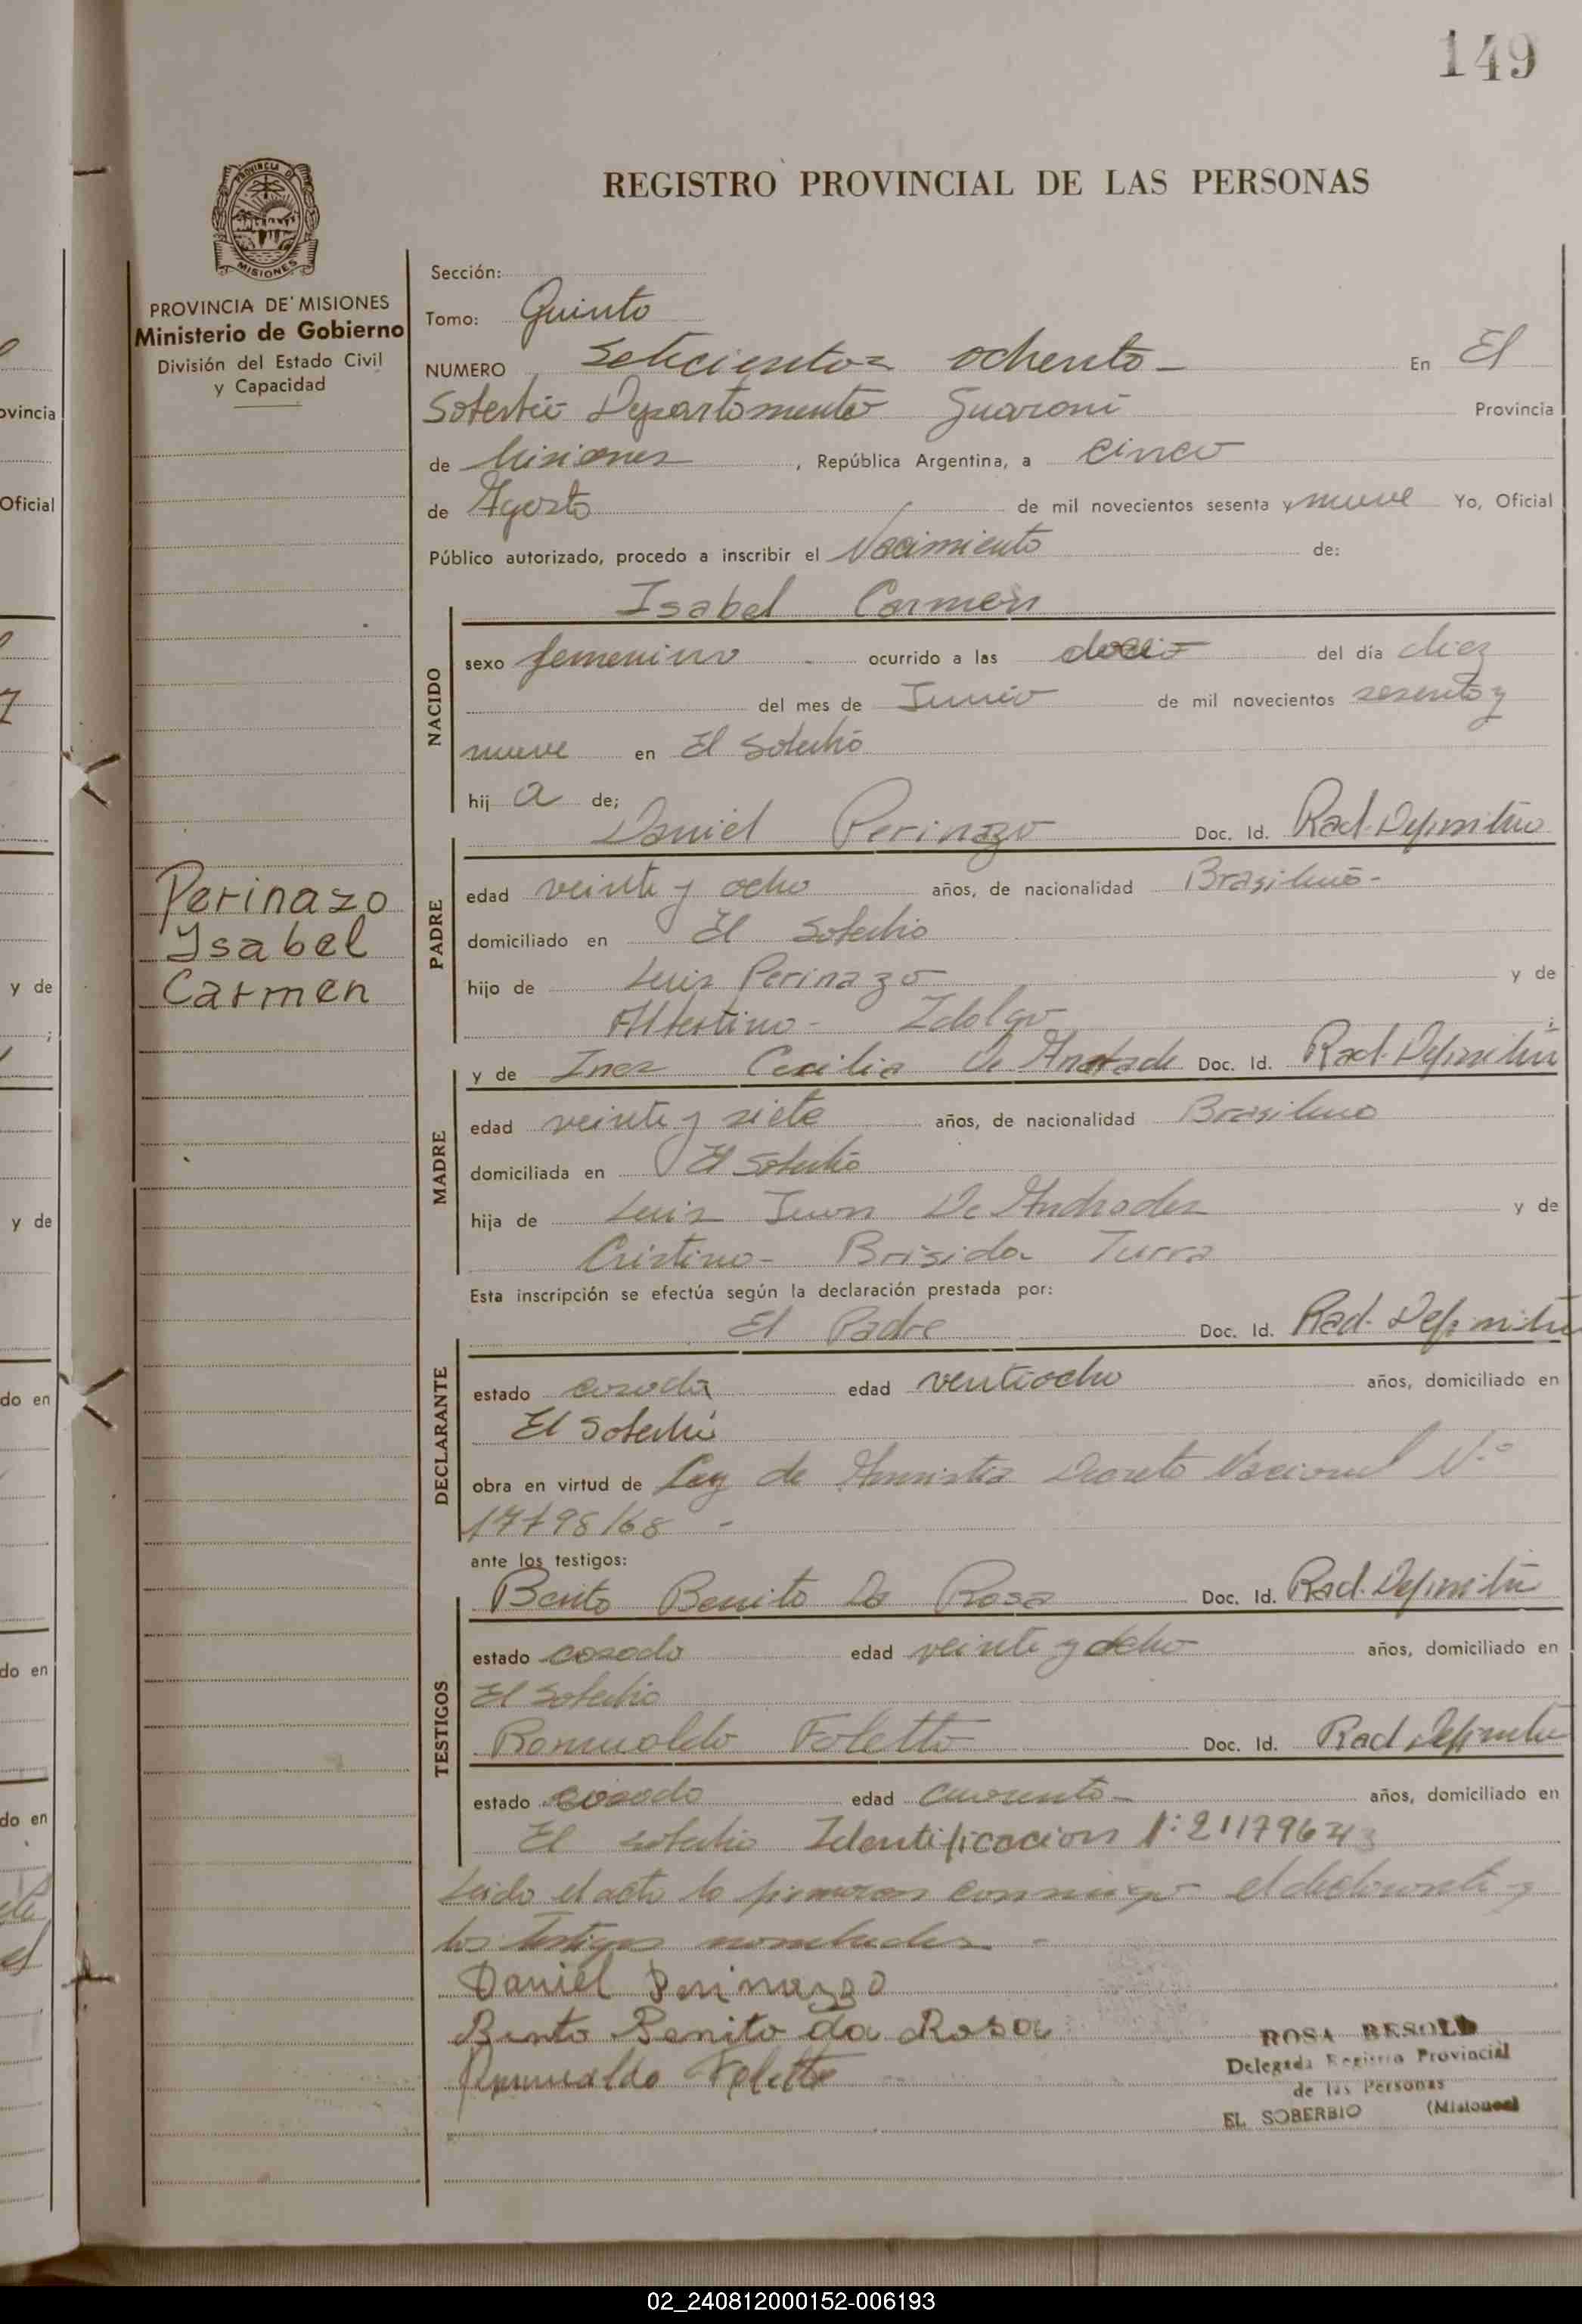 149
REGISTRO PROVINCIAL DE LAS PERSONAS
PROVINCIA DE MISIONES
MISIONES
PROVINCIA DE MISIONES
Ministerio de Gobierno
División del Estado Civil
y Capacidad
Sección:
Tomo: Quinto
NUMERO Setecientos ochenta - En El
Soberbio Departamento Guarani Provincia
de Misiones, República Argentina, a cinco
de Agosto de mil novecientos sesenta y nueve Yo, Oficial
Público autorizado, procedo a inscribir el Nacimiento de:
Isabel Carmen
NACIDO
sexo femenino ocurrido a las del día diez
del mes de Junio de mil novecientos sesenta y
nueve en El Soberbio
hij a de;
Daniel Perinazo Doc. Id. Rad. Definitiva
Perinazo
Isabel
Carmen
PADRE
edad veinte y ocho años, de nacionalidad Brasileño -
domiciliado en El Soberbio
hijo de Luis Perinazo y de
;
y de Inez Cecilia De Andrade Doc. Id. Rad. Definitiva
MADRE
edad veinte y siete años, de nacionalidad Brasileña
domiciliada en El Soberbio
hija de Luis Juan De Andrades y de
Cristina - Brisida Turra
Esta inscripción se efectúa según la declaración prestada por:
El Padre Doc. Id. Rad. Definitiva
DECLARANTE
estado casado edad ventiocho años, domiciliado en
El Soberbio
obra en virtud de Ley de Amnistia Decreto Nacional N°
/68 -
ante los testigos:
Bento Benito Da Rosa Doc. Id. Rad. Definitiva
TESTIGOS
estado casado edad veinte y ocho años, domiciliado en
El Soberbio
Romualdo Foletto Doc. Id. Rad Definitiva
estado casado edad cuarenta - años, domiciliado en
El Soberbio Identificacion
Leido el acta la firmaron conmigo el declarante y
los testigos nombrados -
Daniel Perinazzo
Bento Benito da Rosa
Romualdo Foletto
ROSA BESOLD
Delegada Registro Provincial
de las Personas
EL SOBERBIO (Misiones)
ovincia
Oficial
y de
;
y de
do en
do en
do en
02_240812000152-006193